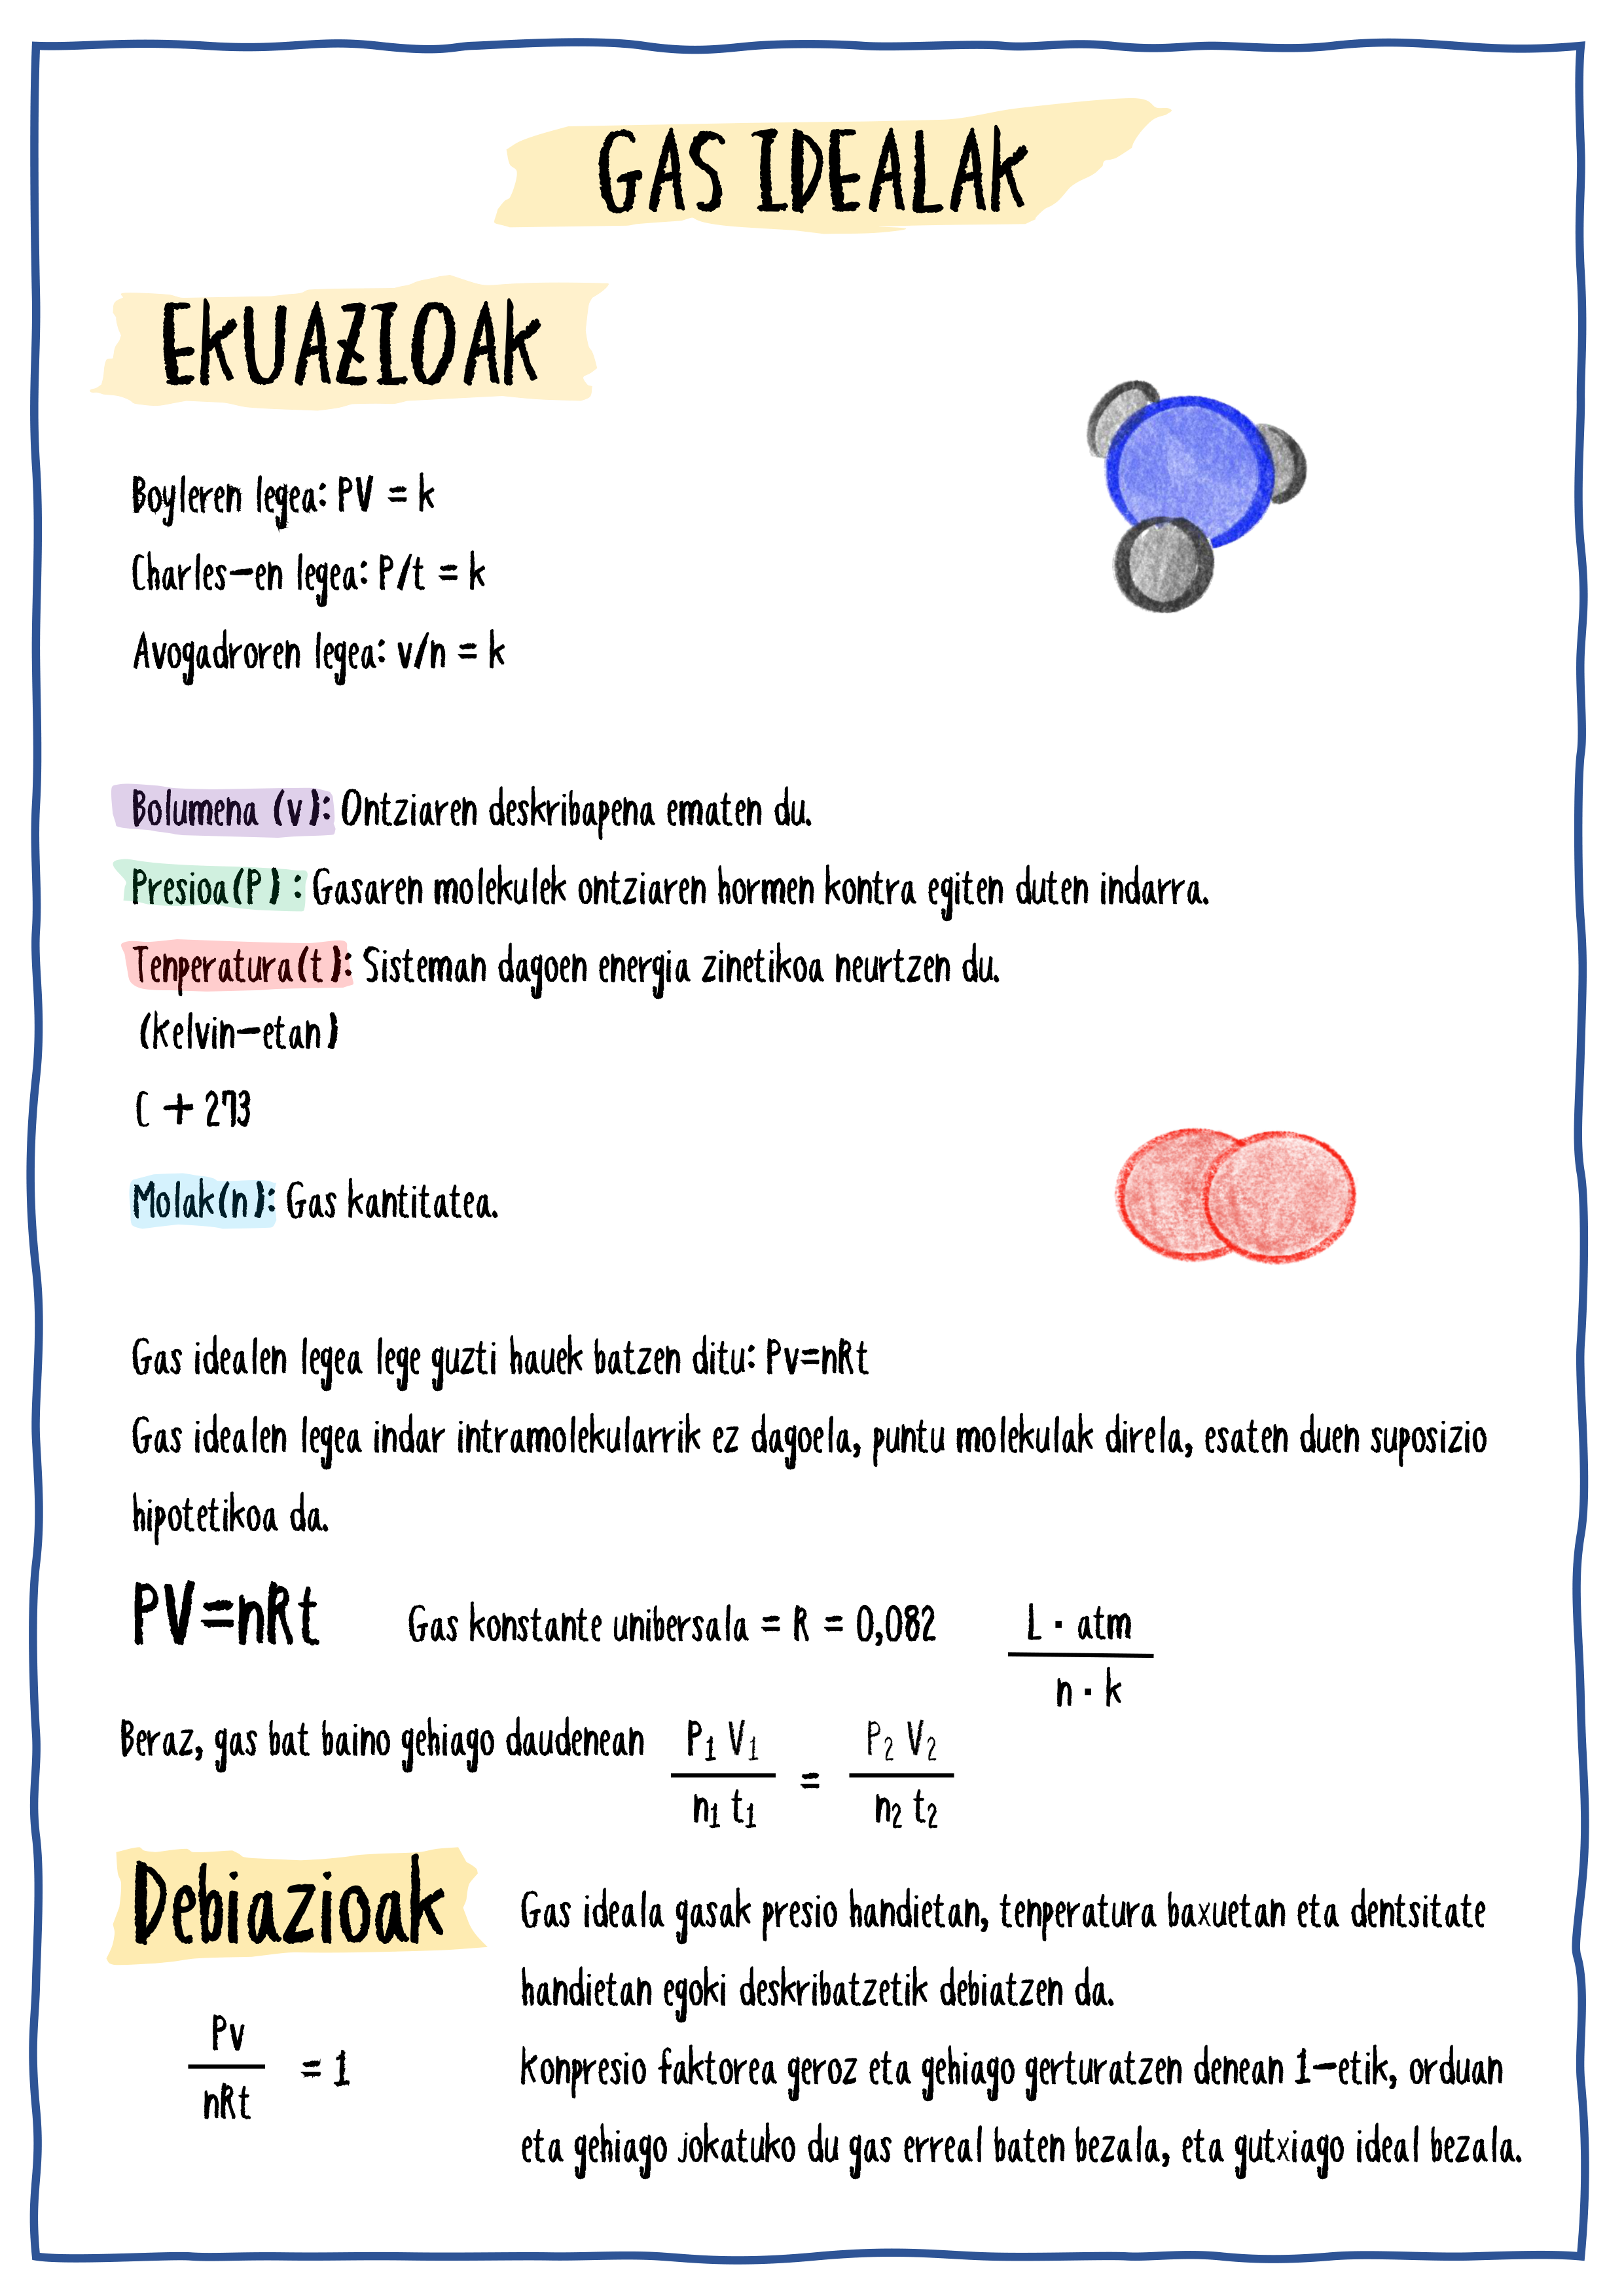 GAS IDEALAK
EKUAZIOAK
Boyleren legea: PV = k
Charles-en legea: P/t = k
Avogadroren legea: v/n = k
Bolumena (v): Ontziaren deskribapena ematen du.
Presioa(P) : Gasaren molekulek ontziaren hormen kontra egiten duten indarra.
Tenperatura(t): Sisteman dagoen energia zinetikoa neurtzen du.
(Kelvin-etan)
C + 273
Molak(n): Gas kantitatea.
Gas idealen legea lege guzti hauek batzen ditu: Pv=nRt
Gas idealen legea indar intramolekularrik ez dagoela, puntu molekulak direla, esaten duen suposizio
hipotetikoa da.
PV=nRt Gas konstante unibersala = R = 0,082 L · atm
n · k
Beraz, gas bat baino gehiago daudenean P₁ V₁ = P₂ V₂
n₁ t₁ n₂ t₂
Debiazioak
Gas ideala gasak presio handietan, tenperatura baxuetan eta dentsitate
handietan egoki deskribatzetik debiatzen da.
Pv
nRt = 1
Konpresio faktorea geroz eta gehiago gerturatzen denean 1-etik, orduan
eta gehiago jokatuko du gas erreal baten bezala, eta gutxiago ideal bezala.